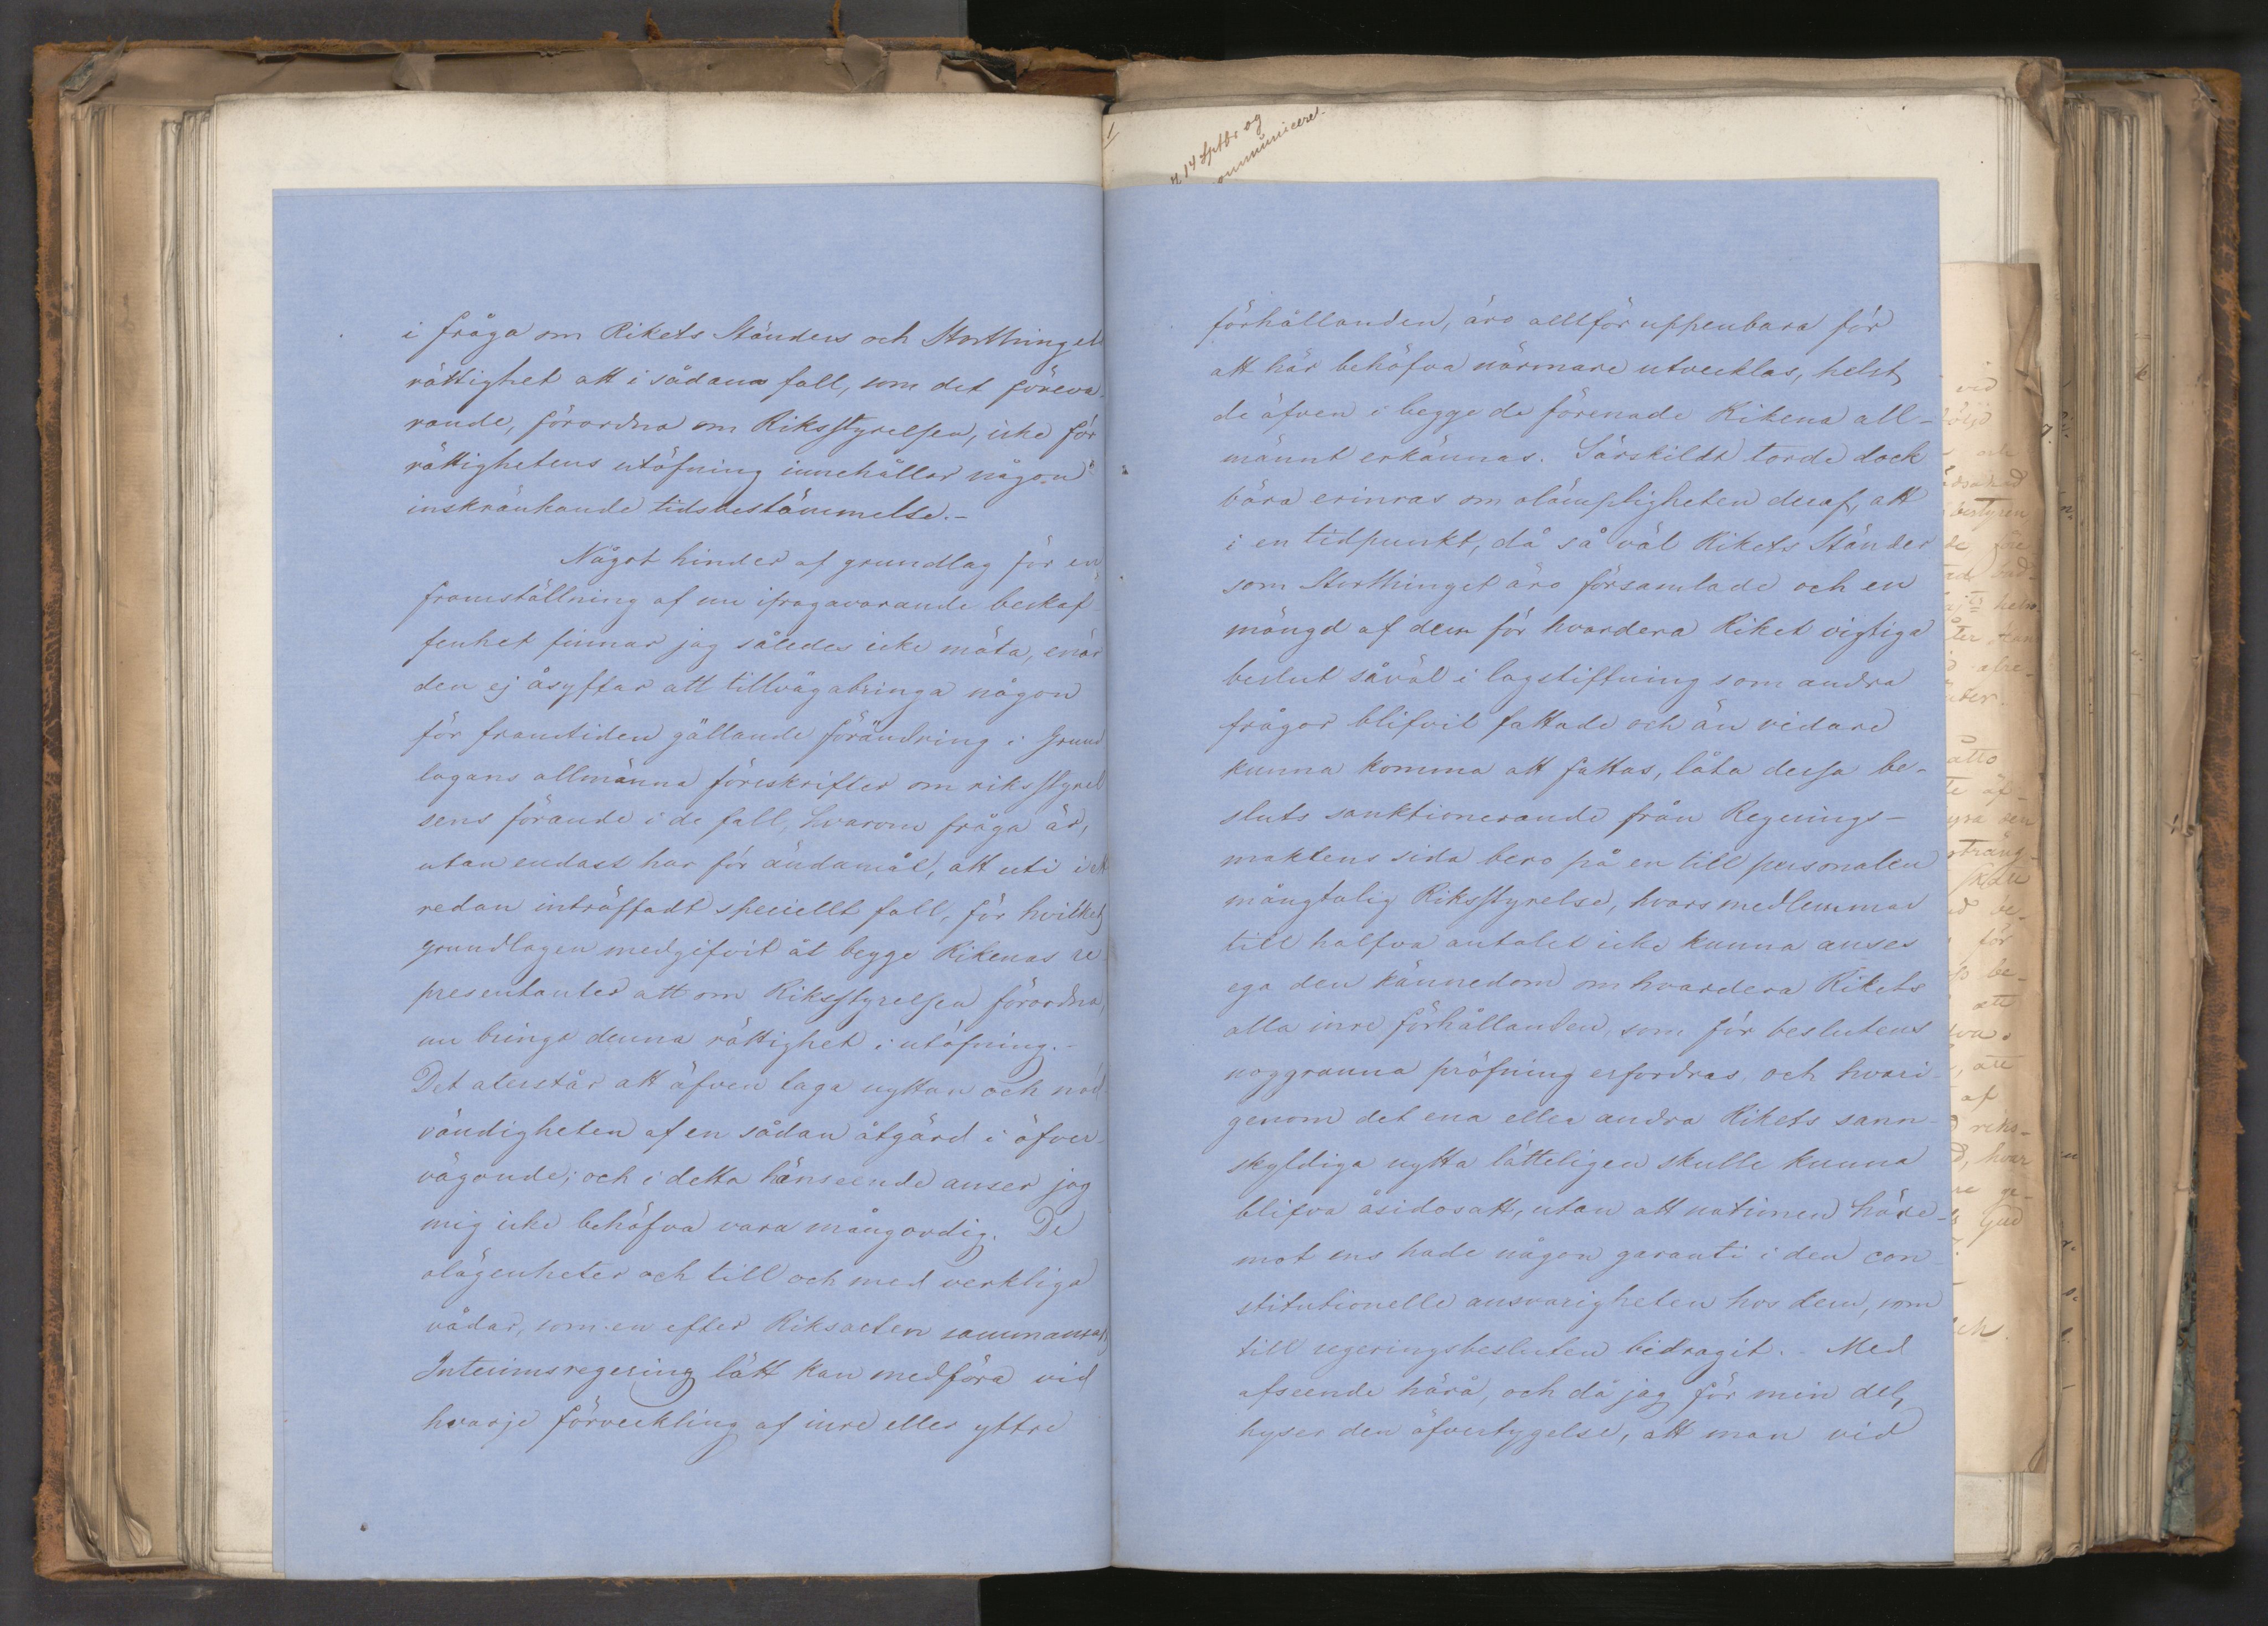 i fråga om Rikets Ständers och Storthingets
rättighet att i sådana fall, som det föreva-
rande, förordna om Riksstyrelsen, icke för
rättighetens utöfning innehåller någon
inskränkande tidsbestämmelse.-
Något hinder af grundlag för en
framställning af nu ifrågavarande beskaf-
fenhet finner jag således icke möta, enär
den ej åsyftar att tillvägabringa någon
för framtiden gällande förändring i Grund
lagens allmänna föreskrifter om riksstyrel
sens förande i de fall, hvarom fråga är,
utan endast har för ändamål, att uti ett
redan inträffadt speciellt fall, för hvilket
grundlagen medgifvit åt begge Rikenas re
presentanter att om Riksstyrelsen förordna,
nu bringa denna rättighet i utöfning.-
Det återstår att äfven taga nyttan och nöd
vändigheten af en sådan åtgärd i öfver-
vägande; och i detta hänseende anser jag
mig icke behöfva vara mångordig. De
olägenheter och till och med verkliga
vådor, som en efter Riksacten sammansatt
Interimsregering lätt kan medföra vid
hvarje förveckling af inre eller yttre
14 Septbr og
ommuniceret.
förhållanden, äro alltför uppenbara för
att här behöfva närmare utvecklas, helst
de äfven i begge de förenade Rikena all-
männt erkännas. Särskildt torde dock
böra erinras om olämpligheten deraf, att
i en tidpunkt, då så väl Rikets Ständer
som Storthinget äro församlade och en
mängd af dem för hvardera Riket vigtiga
beslut såväl i lagstiftning som andra
frågor blifvit fattade och än vidare
kunna komma att fattas, låta dessa be-
sluts sanktionerande från Regerings-
maktens sida bero på en till personalen
mångtalig Riksstyrelse, hvars medlemmar
till halfva antalet icke kunna anses
ega den kännedom om hvardera Rikets
alla inre förhållanden, som för beslutens
noggranna pröfning erfordras, och hvari-
genom det ena eller andra Rikets sann-
skyldiga nytta lätteligen skulle kunna
blifva åsidosatt, utan att nationen häre-
mot ens hade någon garanti i den con-
stitutionelle ansvarigheten hos dem, som
till regeringsbesluten bidragit. - Med
afseende härå, och då jag för min del,
hyser den öfvertygelse, att man vid